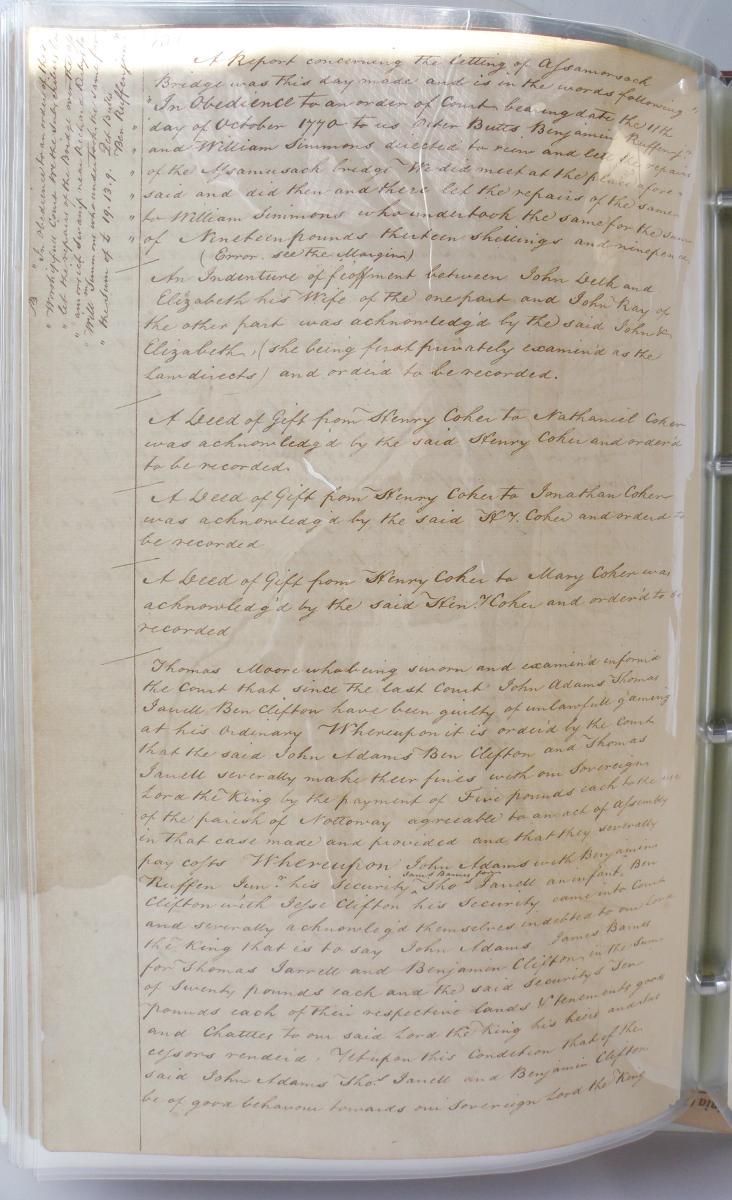 A Report concerning the letting of Assamoosack
Bridge was this day made and is in the words following
"In Obedience to an order of Court bearing date the 11th
day of October 1770 to us Peter Butts Benjamin Ruffin Jr
and William Simmons directed to view and let the repairs
of the Assamusack bridge We did meet at the place afore-
said and did then and there let the repairs of the same
to William Simmons who undertook the same for the sum
of Nineteen pounds thirteen shillings and ninepence
(Error. see the Margin)
"In Obedience to an order of the
"Worshipfull Court We the Subscribers
"let the repairs of the Bridge over the
Swamp near Richard
"Will Simmons who undertook the same for
"the sum of £ 19.13.9. Pet Butts
"Ben Ruffin Jun
An Indenture of feoffment between John Delk and
Elizabeth his Wife of the one part and John Kay of
the other part was acknowledg'd by the said John &
Elizabeth, (she being first privately examin'd as the
Law directs) and order'd to be recorded.
A Deed of Gift from Henry Coker to Nathaniel Coker
was acknowledg'd by the said Henry Coker and order'd
to be recorded.
A Deed of Gift from Henry Coker to Jonathan Coker
was acknowledg'd by the said Hy. Coker and order'd to
be recorded
A Deed of Gift from Henry Coker to Mary Coker was
acknowledg'd by the said Hen:y Coker and order'd to be
recorded
Thomas Moore who being sworn and examin'd inform'd
the Court that since the last Court John Adams Thomas
Jarrell Ben Clifton have been guilty of unlawfull gaming
at his Ordinary Whereupon it is order'd by the Court
that the said John Adams Ben Clifton and Thomas
Jarrell severally make their fines with our Sovereign
Lord the King by the payment of Five pounds each to the use
of the parish of Nottoway agreeable to an act of Assembly
in that case made and provided and that they severally
pay costs Whereupon John Adams with Benjamin
Ruffin Junr. his Security James Barnes for Thos Jarrell an infant, Ben
Clifton with Jesse Clifton his Security came into Court
and severally acknowledg'd themselves indebted to our Lord
the King that is to say John Adams, James Barnes
for Thomas Jarrell and Benjamin Clifton in the sum
of Twenty pounds each and the said Securitys Ten
pounds each of their respective lands & tenements goods
and Chattles to our said Lord the King his heirs and Suc
cessors render'd. Yet upon this Condition that if the
said John Adams Thos Jarrell and Benjamin Clifton
be of good behaviour towards our Sovereign Lord the King